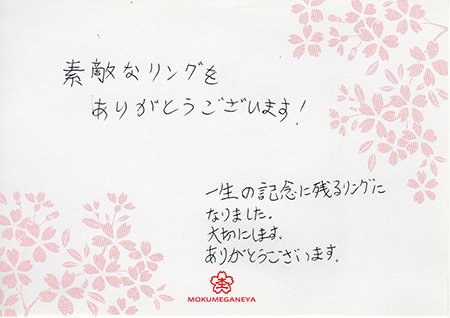 素敵なリングを
ありがとうございます！
一生の記念に残るリングに
なりました。
大切にします。
ありがとうございます。
MOKUMEGANEYA